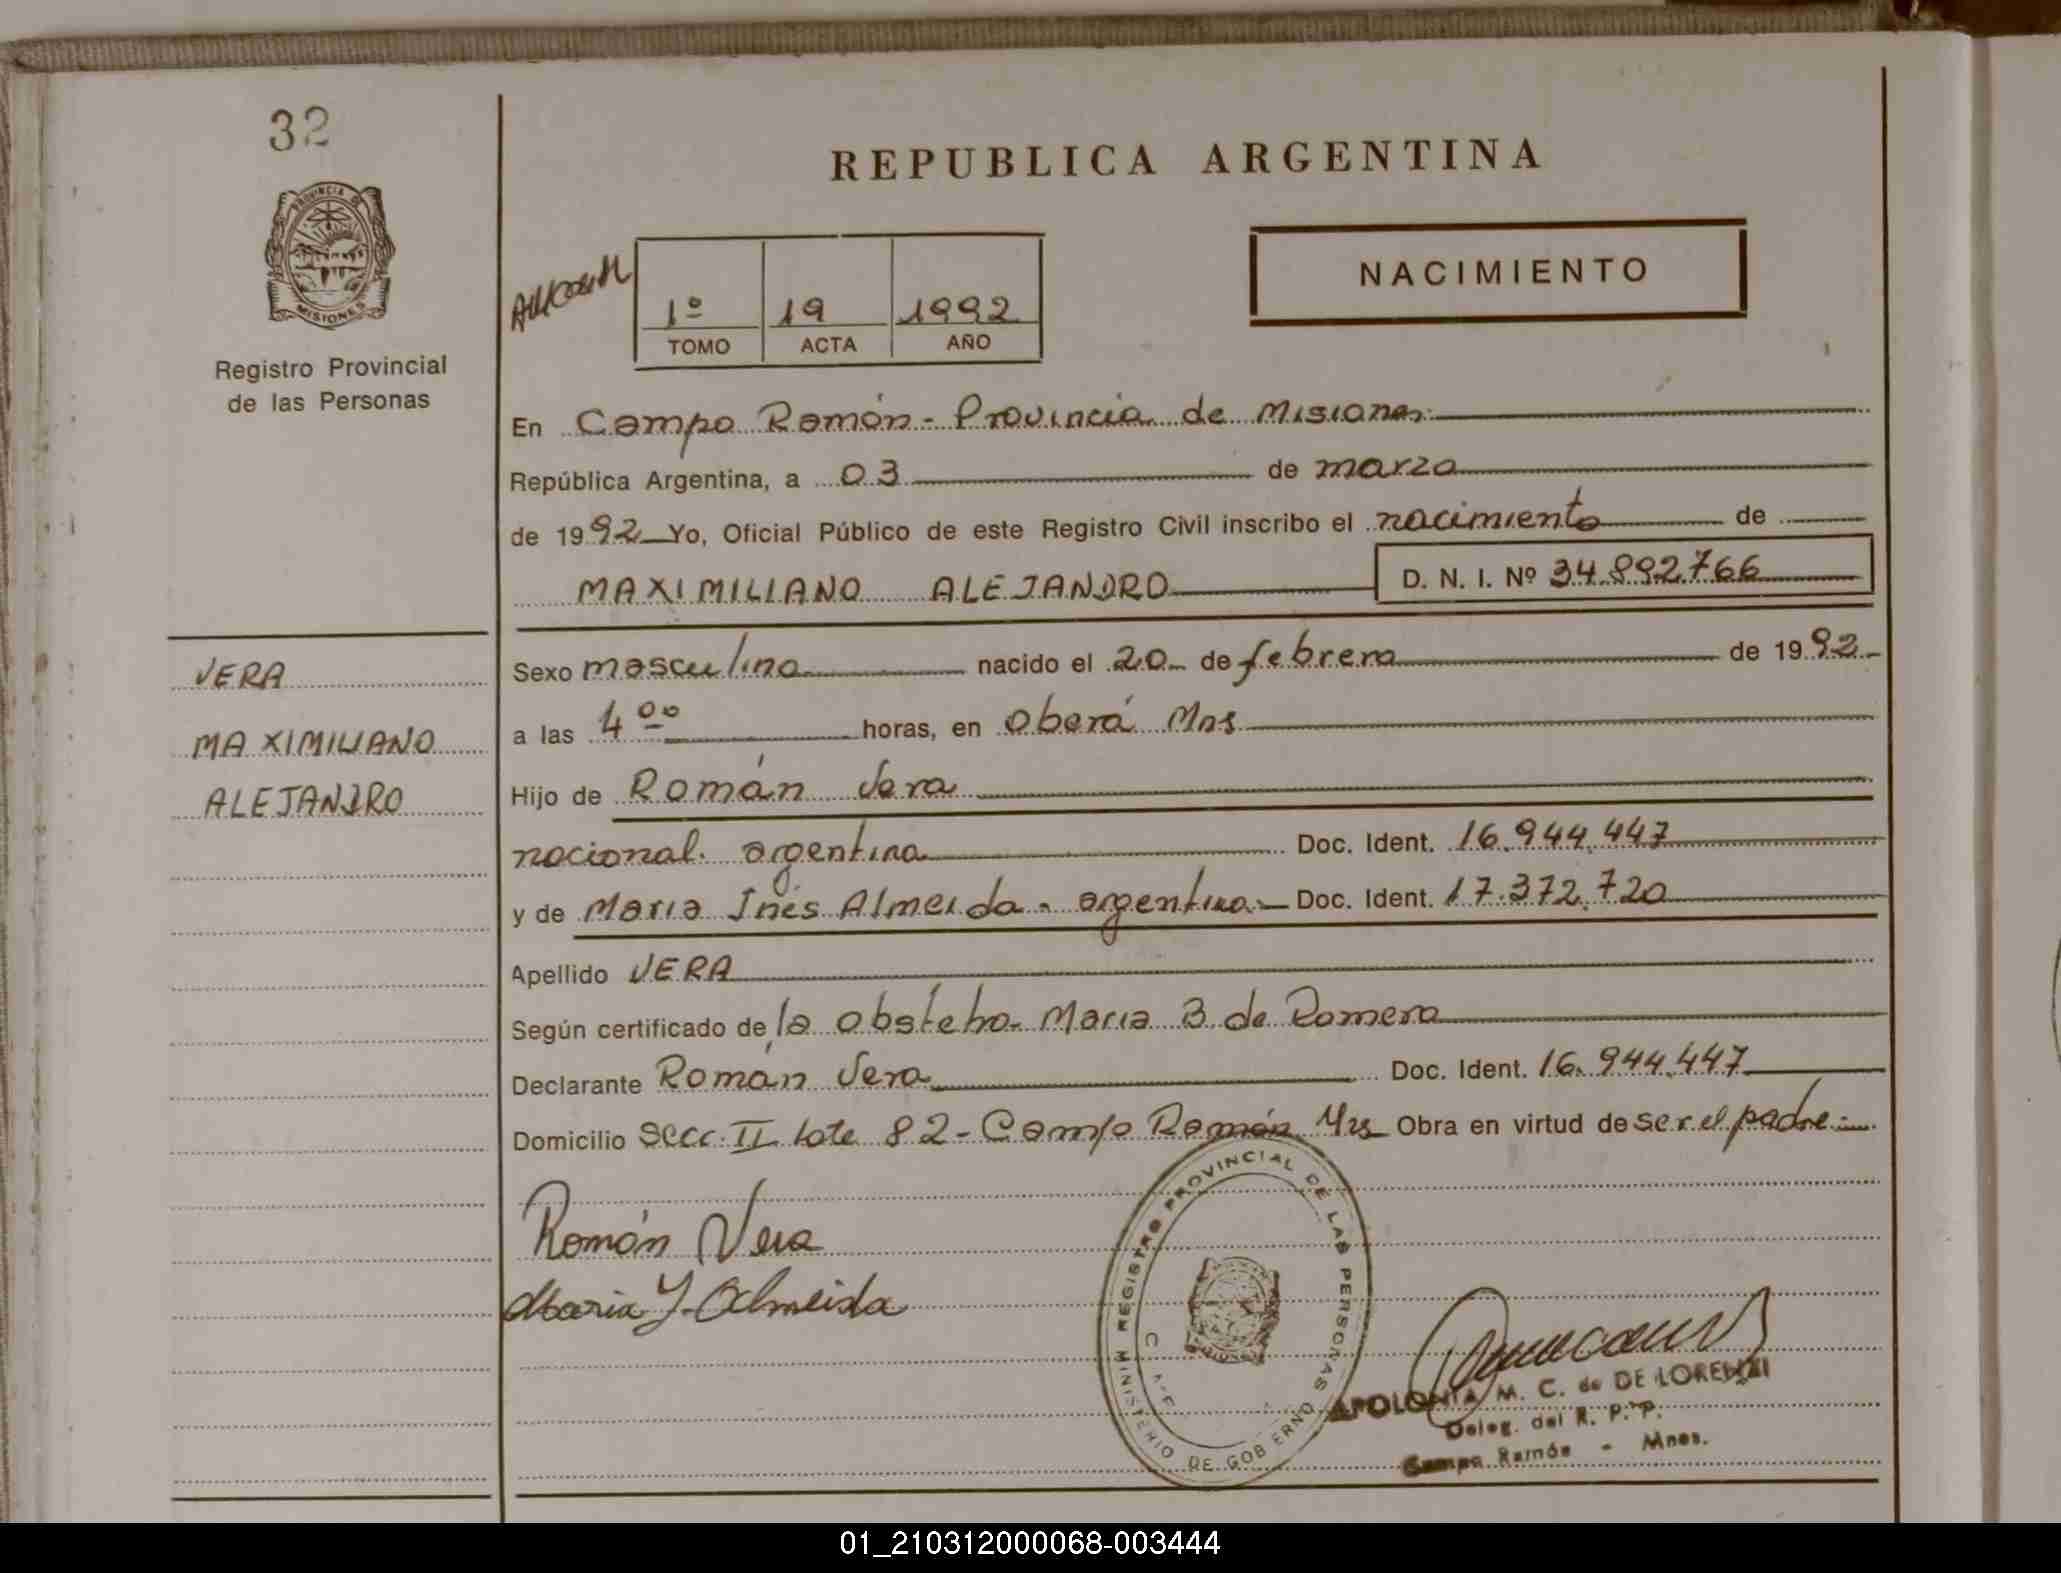 32
PROVINCIA DE
MISIONES
Registro Provincial
de las Personas
REPUBLICA ARGENTINA
1º 19 1992
TOMO ACTA AÑO
NACIMIENTO
En Campo Ramón - Provincia de Misiones
República Argentina, a 03 de marzo
de 1992 Yo, Oficial Público de este Registro Civil inscribo el nacimiento de
MAXIMILIANO ALEJANDRO D. N. I. Nº 34.892.766
VERA
MAXIMILIANO
ALEJANDRO
Sexo masculino nacido el 20 de febrero de 1992
a las 4 ºº horas, en Oberá Mns
Hijo de Román Vera
nacional. argentina Doc. Ident. 16.944.447
y de Maria Inés Almeida - argentina Doc. Ident. 17.372.720
Apellido VERA
Según certificado de la obstetra - Maria B. de Romero
Declarante Román Vera Doc. Ident. 16.944.447
Domicilio Secc. II lote 82 - Campo Ramón Mns Obra en virtud de ser el padre
Román Vera
Maria Y. Almeida
MINISTERIO DE GOBIERNO
REGISTRO PROVINCIAL DE LAS PERSONAS
APOLONIA M. C. de DE LORENZI
Deleg. del R. P. P.
Campo Ramón - Mnes.
01_210312000068-003444